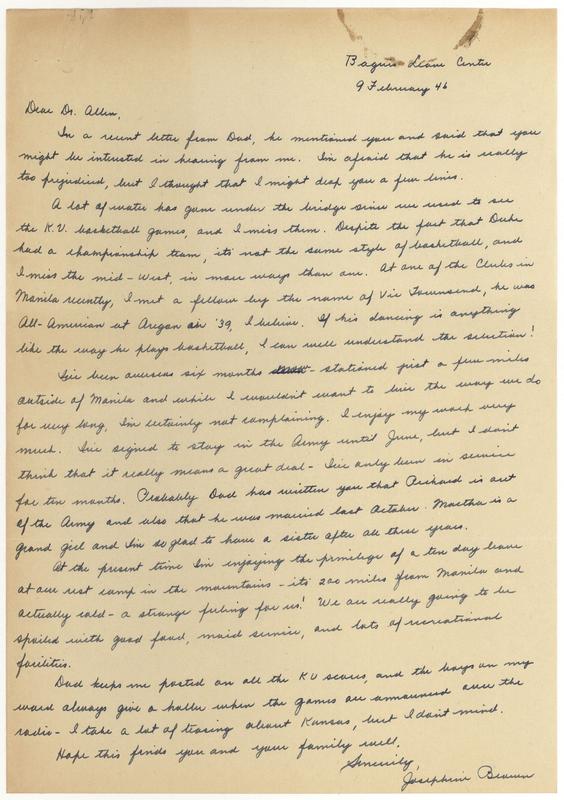 Baguio Leave Center
9 February 46
Dear Dr. Allen,
In a recent letter from Dad, he mentioned you and said that you
might be interested in hearing from me. I'm afraid that he is really
too prejudiced, but I thought that I might drop you a few lines.
A lot of water has gone under the bridge since we used to see
the K.U. basketball games, and I miss them. Despite the fact that Duke
had a championship team, it's not the same style of basketball, and
I miss the mid-West, in more ways than one. At one of the Clubs in
Manila recently, I met a fellow by the name of Vic Townsend, he was
All-American at Oregon in '39, I believe. If his dancing is anything
like the way he plays basketball, I can well understand the selection!
I've been overseas six months stationed just a few miles
outside of Manila and while I wouldn't want to live the way we do
for very long, I'm certainly not complaining. I enjoy my work very
much. I've signed to stay in the Army until June, but I don't
think that it really means a great deal - I've only been in service
for ten months. Probably Dad has written you that Richard is out
of the Army and also that he was married last October. Martha is a
grand girl and I'm so glad to have a sister after all these years.
At the present time I'm enjoying the privilege of a ten day leave
at our rest camp in the mountains - it's 200 miles from Manila and
actually cold - a strange feeling for us! We are really going to be
spoiled with good food, maid service, and lots of recreational
facilities.
Dad keeps me posted on all the KU scores, and the boys on my
ward always give a holler when the games are announced over the
radio - I take a lot of teasing about Kansas, but I don't mind.
Hope this finds you and your family well.
Sincerely,
Josephine Brown